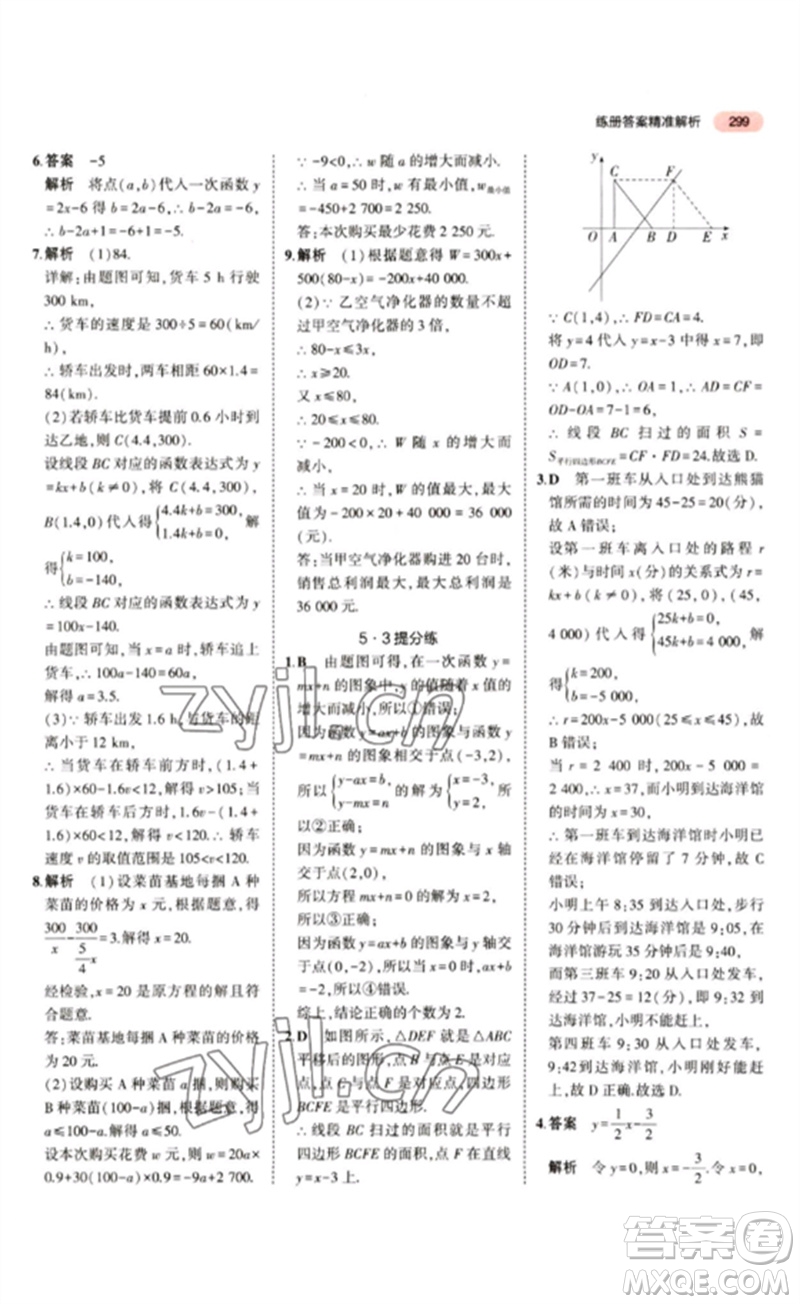 练册答案精准解析 299
6.答案 -5
解析 将点(a,b)代入一次函数y
=2x-6得b=2a-6,∴b-2a=-6,
∴b-2a+1=-6+1=-5.
7.解析 (1)84.
详解:由题图可知,货车5 h行驶
300 km,
∴货车的速度是300÷5=60(km/
h),
∴轿车出发时,两车相距60×1.4=
84(km).
(2)若轿车比货车提前0.6小时到
达乙地,则C(4.4,300).
设线段BC对应的函数表达式为y
=kx+b(k≠0),将C(4.4,300),
B(1.4,0)代入得{4.4k+b=300, 1.4k+b=0, 解
得{k=100, b=-140,
∴线段BC对应的函数表达式为y
=100x-140.
由题图可知,当x=a时,轿车追上
货车,∴100a-140=60a,
解得a=3.5.
(3)∵轿车出发1.6 h,与货车的距
离小于12 km,
∴当货车在轿车前方时,(1.4+
1.6)×60-1.6v<12,解得v>105,
当轿车在货车前方时,1.6v-(1.4+
1.6)×60<12,解得v<120.∴轿车
的v的取值范围是105<v<120.
8.解析 (1)设菜苗基地每捆A种
菜苗的价格为x元,根据题意,得
300/x-300/(5/4 x)=3.解得x=20.
经检验,x=20是原方程的解且符
合题意.
答:菜苗基地每捆A种菜苗的价格
为20元.
(2)设购买A种菜苗a捆,则购买
B种菜苗(100-a)捆,根据题意,得
a≤100-a,解得a≤50.
设本次购买花费w元,则w=20a×
0.9+30(100-a)×0.9=-9a+2 700.
∵-9<0,∴w随a的增大而减小.
∴当a=50时,w有最小值,w最小值=
-450+2 700=2 250.
答:本次购买最少花费2 250元.
9.解析 (1)根据题意得W=300x+
500(80-x)=-200x+40 000.
(2)∵乙空气净化器的数量不超
过甲空气净化器的3倍,
∴80-x≤3x,
∴x≥20.
又x≤80,
∴20≤x≤80.
∵-200<0,∴W随x的增大而
减小,
∴当x=20时,W的值最大,最大
值为-200×20+40 000=36 000
(元).
答:当甲空气净化器购进20台时,
销售总利润最大,最大总利润是
36 000元.
5·3提分练
1.B 由题图可得,在一次函数y=
mx+n的图象中,y的值随着x的值
的增大而减小,所以①错误;
因为一次函数y=ax+b与y=
mx+n的图象相交于点(-3,2),
所以{y-ax=b, y-mx=n 的解为{x=-3, y=2,
所以②正确;
因为函数y=mx+n的图象与x轴
交于点(2,0),
所以方程mx+n=0的解为x=2,
所以③正确;
因为函数y=ax+b的图象与y轴交
于点(0,-2),所以当x=0时,ax+b
=-2,所以④错误.
综上,结论正确的个数为2.
2.D 如图所示,△DEF就是△ABC
平移后的图形,点B与点E是对应
点,点C与点F是对应点,四边形
BCFE是平行四边形.
∴线段BC扫过的面积就是平行
四边形BCFE的面积,点F在直线
y=x-3上.
y
C F
O A B D E x
∵C(1,4),∴FD=CA=4.
将y=4代入y=x-3中得x=7,即
OD=7.
∵A(1,0),∴OA=1,∴AD=CF=
OD-OA=7-1=6,
∴线段BC扫过的面积S=
S平行四边形BCFE=CF·FD=24.故选D.
3.D 第一班车从入口处到达熊猫
馆所需的时间为45-25=20(分),
故A错误;
设第一班车离入口处的路程r
(米)与时间x(分)的关系式为r
=kx+b(k≠0),将(25,0),(45,
4 000)代入得{25k+b=0, 45k+b=4 000, 解
得{k=200, b=-5 000,
∴r=200x-5 000(25≤x≤45),故
B错误;
当r=2 400时,200x-5 000=
2 400,解得x=37,37-30=7,
∴第一班车到达海洋馆时小明已
经在海洋馆停留了7分钟,故C
错误;
小明上午8:35到达入口处,9:05
到达海洋馆,在9:05的基础上加
30分钟为9:35,故小明9:35在
海洋馆游玩结束,
而第三班车9:30从入口处发车,
经过37-25=12(分)到达海洋馆,
第四班车9:42从入口处发车,
9:42小明刚好能在海洋馆赶上
第三班车,故D正确.故选D.
4.答案 y=1/2x-3/2
解析 令y=0,则x=-3/2.令x=0,
zyjl.cn
zyjl.cn
答案圈
MXQE.COM